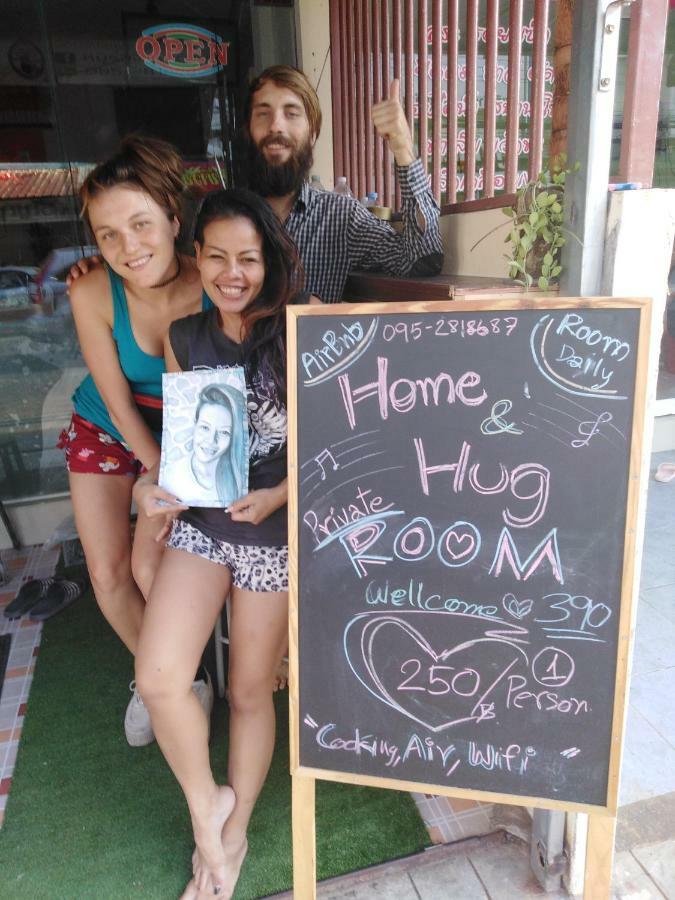 OPEN
AirBnb
095-2818687
Room
Daily
Home
&
Hug
Private
ROOM
Wellcome 390
250 ฿/Person 1
"Cooking, Air, Wifi"